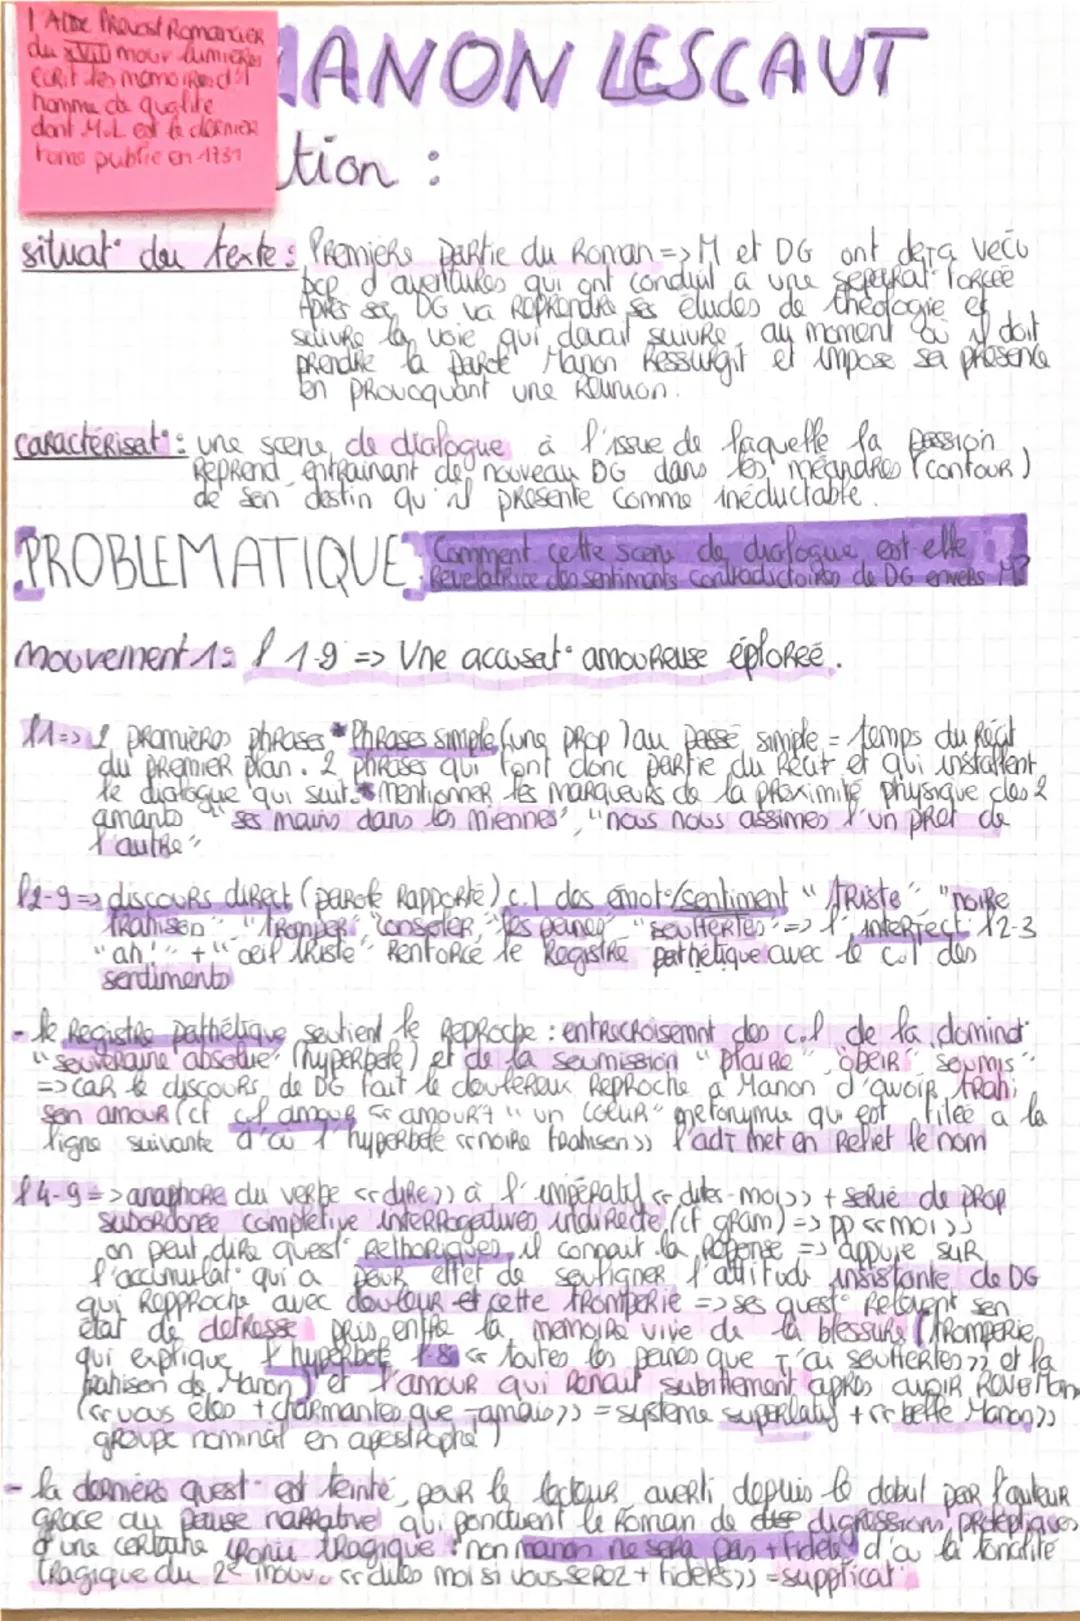 1 Abbé Prévost Romancier
du XVIII mouv lumières
écrit les memoires d'1
homme de qualite
dont M.L est le dernier
tome publie en 1731
MANON LESCAUT
tion :
situat° du texte : Première partie du Roman => M et DG ont deja vecu
bcp d'aventures qui ont conduit a une separat° forcée
Après sa DG va Reprendre ses études de théologie et
suivre la voie qui devait suivre, au moment où il doit
prendre la parole Manon Ressurgit et impose sa présence
en provoquant une Réunion.
caractérisat° : une scene de dialogue à l'issue de laquelle la passion
Reprend entrainant de nouveau DG dans les méandres (contour)
de son destin qu'il présente comme inéductable.
PROBLEMATIQUE : Comment cette scene de dialogue est elle
Revelatrice des sentiments contradictoires de DG envers M?
mouvement 1 : l 1-9 => Une accusat° amoureuse éploréé.
l1 => 2 premières phrases * Phrases simple (une prop) au passé simple = temps du Récit
du premier plan. 2 phrases qui font donc partie du Récit et qui installent
le dialogue qui suit. * mentionner les marqueurs de la proximité physique des 2
amants "ses mains dans les miennes", "nous nous assimes l'un pret de
l'autre"
l2-9 => discours direct (parole Rapporté) c.l des émot°/sentiment "triste" "noire
trahisen" "tromper" "consoler" "les peines" "souffertes" => l'interject° l2-3
"ah!" + "oeil triste" Renforce le Registre pathétique avec le c.l des
sentiments
- le Registre pathétique soutient le Reproche : entrecroisemnt des c.l de la dominat°
"souveraine absolue" (hyperbole) et de la soumission "plaire", "obeir" "soumis"
=> car le discours de DG fait le douloureux Reproche a Manon d'avoir trahi
son amour (cf c.l amour << amour >> "un coeur" métonymie qui est filée a la
ligne suivante d'où l'hyperbole << noire trahisen >> l'adj met en Relief le nom
l4-9 => anaphore du verbe << dire >> à l'impératif << dites-moi >> + serie de prop
subordonée complétive interrogatives indirecte (cf gram) => pp << moi >>
on peut dire quest° Rethoriques, il connait la Réponse => appuye sur
l'accumulat° qui a pour effet de souligner l'attitude insistante de DG
qui Repproche avec douleur et cette tromperie => ses quest° Relevent sen
état de detresse pris entre la memoire vive de la blessure (tromperie
qui explique l'hyperbole l.8 << toutes les peines que j'ai souffertes >> et la
trahison de Manon) et l'amour qui Renait subittement après avoir Revu Manon
(<< vous etes + charmantes que jamais >> = système superlatif + << belle Manon >>
groupe nominal en apostrophe)
- la dernière quest° est teinté, pour le lecteur averti depuis le debut par l'auteur
grace au pause narrative qui ponctuent le Roman de digressions proleptiques
d'une certaine ironie tragique : non manon ne sera pas + fidele d'où la tonalité
tragique du 2e mouv. << dites moi si vous serez + fideles >> = supplicat°